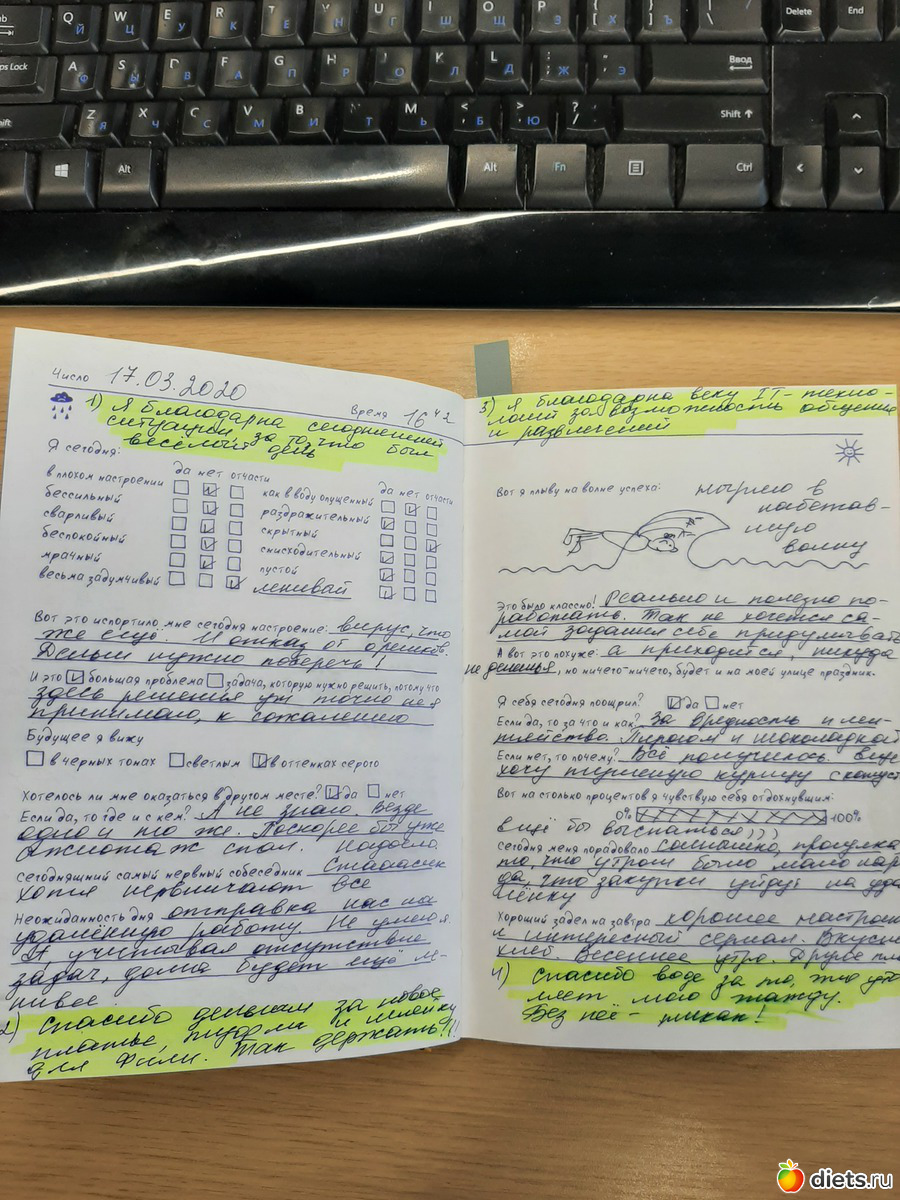 Q W E R T Y U I O P { [ } ] | \ Delete End
Й Ц У К Е Н Г Ш Щ З Х Ъ
ps Lock A S D F G H J K L : ; " ' Ввод
Ф Ы В А П Р О Л Д Ж Э
hift Z X C V B N M < , > . ? / Shift
Я Ч С М И Т Ь Б Ю
Alt Alt Fn Ctrl
Число 17.03.2020
Время 16 42
1) Я благодарна сегодняшней
ситуации за то, что был
весёлый день
Я сегодня:
да нет отчасти
да нет отчасти
в плохом настроении
как в воду опущенный
бессильный
раздражительный
сварливый
скрытный
беспокойный
снисходительный
мрачный
пустой
весьма задумчивый
ленивай
Вот это испортило мне сегодня настроение: вирус, что
же ещё. И отказ от орешков.
Деньги нужно поберечь!
И это большая проблема задача, которую нужно решить, потому что
здесь решения уж точно не я
принимаю, к сожалению
Будущее я вижу
в черных тонах светлым в оттенках серого
Хотелось ли мне оказаться в другом месте? да нет
Если да, то где и с кем? Я не знаю. Везде
одно и то же. Поскорее бы уже
ажиотаж спал. Надоело
Сегодняшний самый нервный собеседник
Хотя нервничают все
Неожиданность дня отправка нас на
удалённую работу. Не умею я.
А учитывая отсутствие
задач, дома будет ещё ле-
нивее
2) Спасибо деньгам за новое
платье, пудру и шлейку
для Фили. Так держать!!!
3) Я благодарна веку IT-техно-
логий за возможность общения
и развлечений
Вот я плыву на волне успеха: ныряю в
набегав-
шую
волну
Это было классно! Реально и полезно по-
работать. Так не хочется са-
мой задания себе придумывать
А вот это похуже: а приходится, никуда
не денешься, но ничего-ничего, будет и на моей улице праздник.
Я себя сегодня поощрил? да нет
Если да, то за что и как? За вредность и лен-
тяйство. Пирогом и шоколадкой
Если нет, то почему? Всё получилось. Ещё
хочу тушеную курицу с капуст
Вот на столько процентов я чувствую себя отдохнувшим:
0% 100%
ещё бы выспаться)))
Сегодня меня порадовало солнышко, прогулка
то, что утром было мало нар
да, что закупки уйдут на уда
лёнку
Хороший задел на завтра хорошее настроен
и интересный сериал. Вкусн
хлеб. Весеннее утро. Другое пла
4) Спасибо воде за то, что уто
ляет мою жажду.
Без неё - никак!
diets.ru